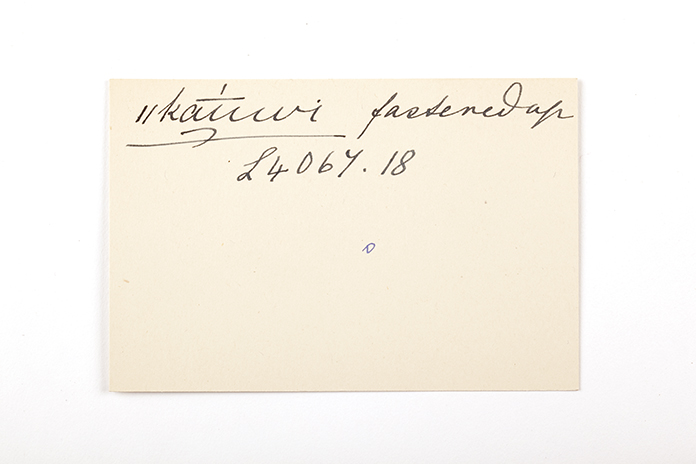 ǁkátuwi fastened up
L4067.18